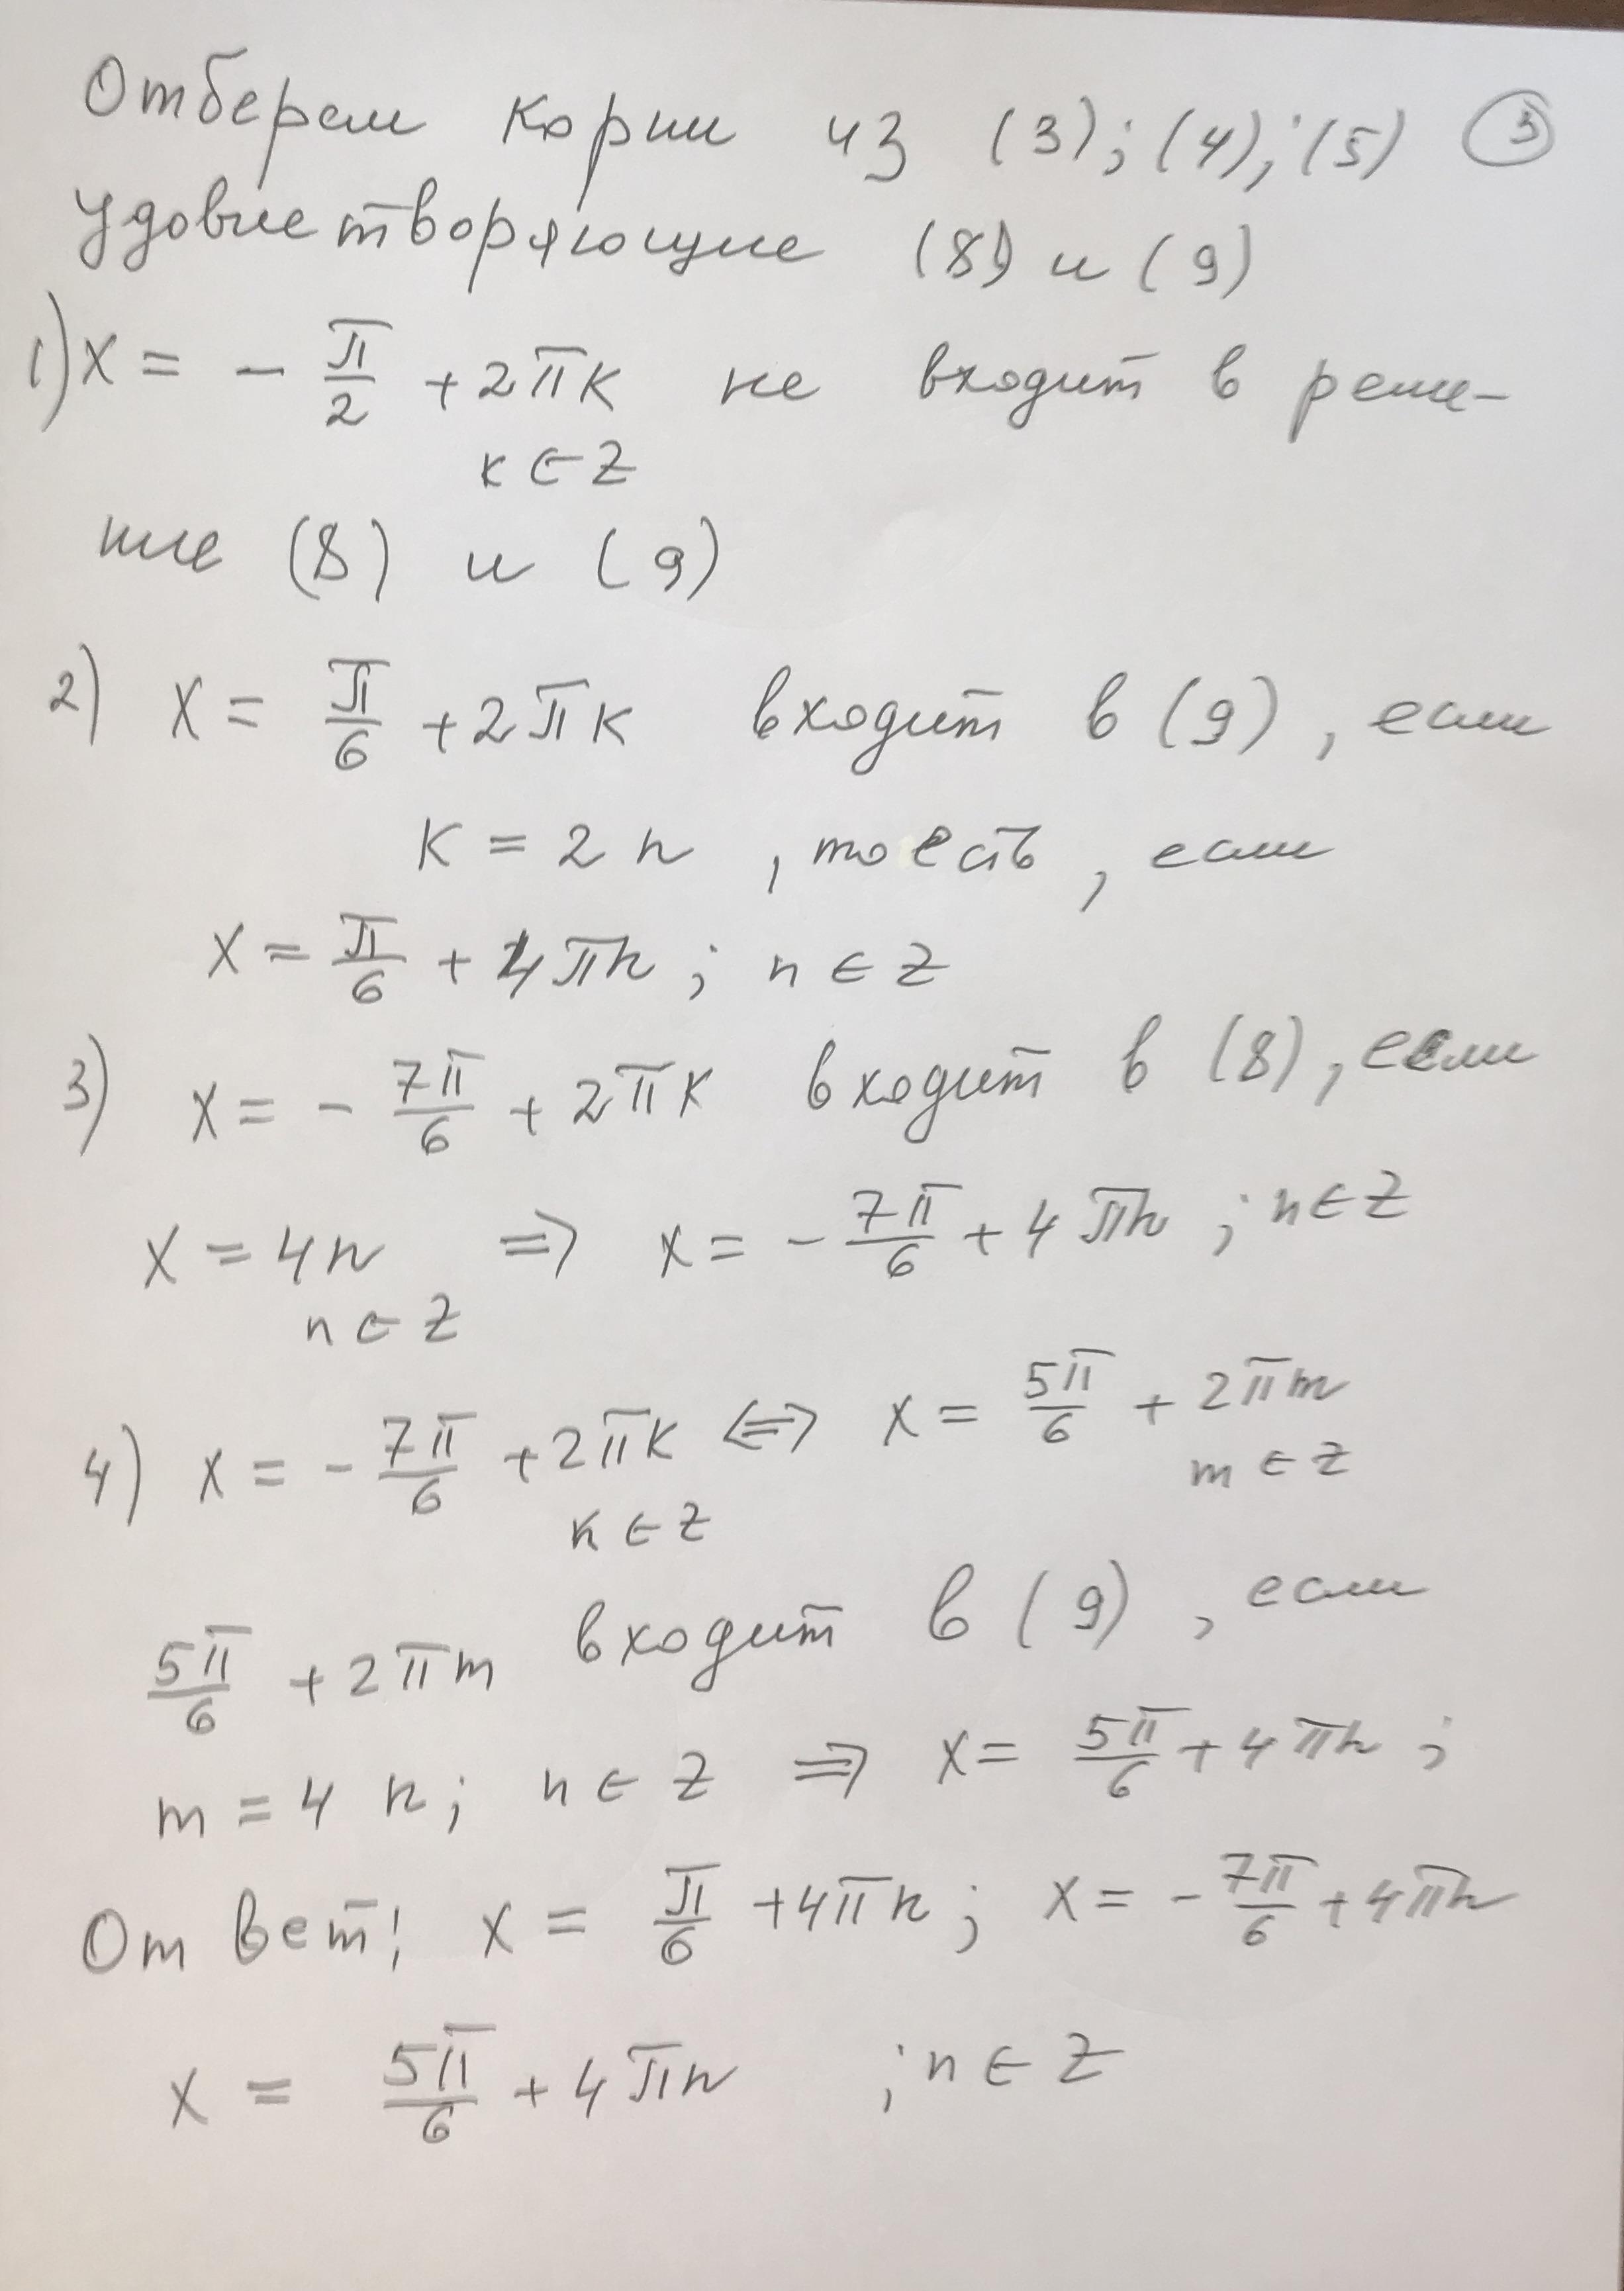 Отберем корни из (3); (4); (5) ③
удовлетворяющие (8) и (9)
1) x = - π/2 + 2πk не входит в реше-
k ∈ Z
ние (8) и (9)
2) x = π/6 + 2πk входит в (9), если
k = 2n, то есть, если
x = π/6 + 4πn; n ∈ Z
3) x = - 7π/6 + 2πk входит в (8), если
x = 4n ⇒ x = - 7π/6 + 4πn; n ∈ Z
n ∈ Z
4) x = - 7π/6 + 2πk ⇔ x = 5π/6 + 2πm
k ∈ Z m ∈ Z
5π/6 + 2πm входит в (9), если
m = 4n; n ∈ Z ⇒ x = 5π/6 + 4πn;
Ответ! x = π/6 + 4πn; x = - 7π/6 + 4πn
x = 5π/6 + 4πn ; n ∈ Z